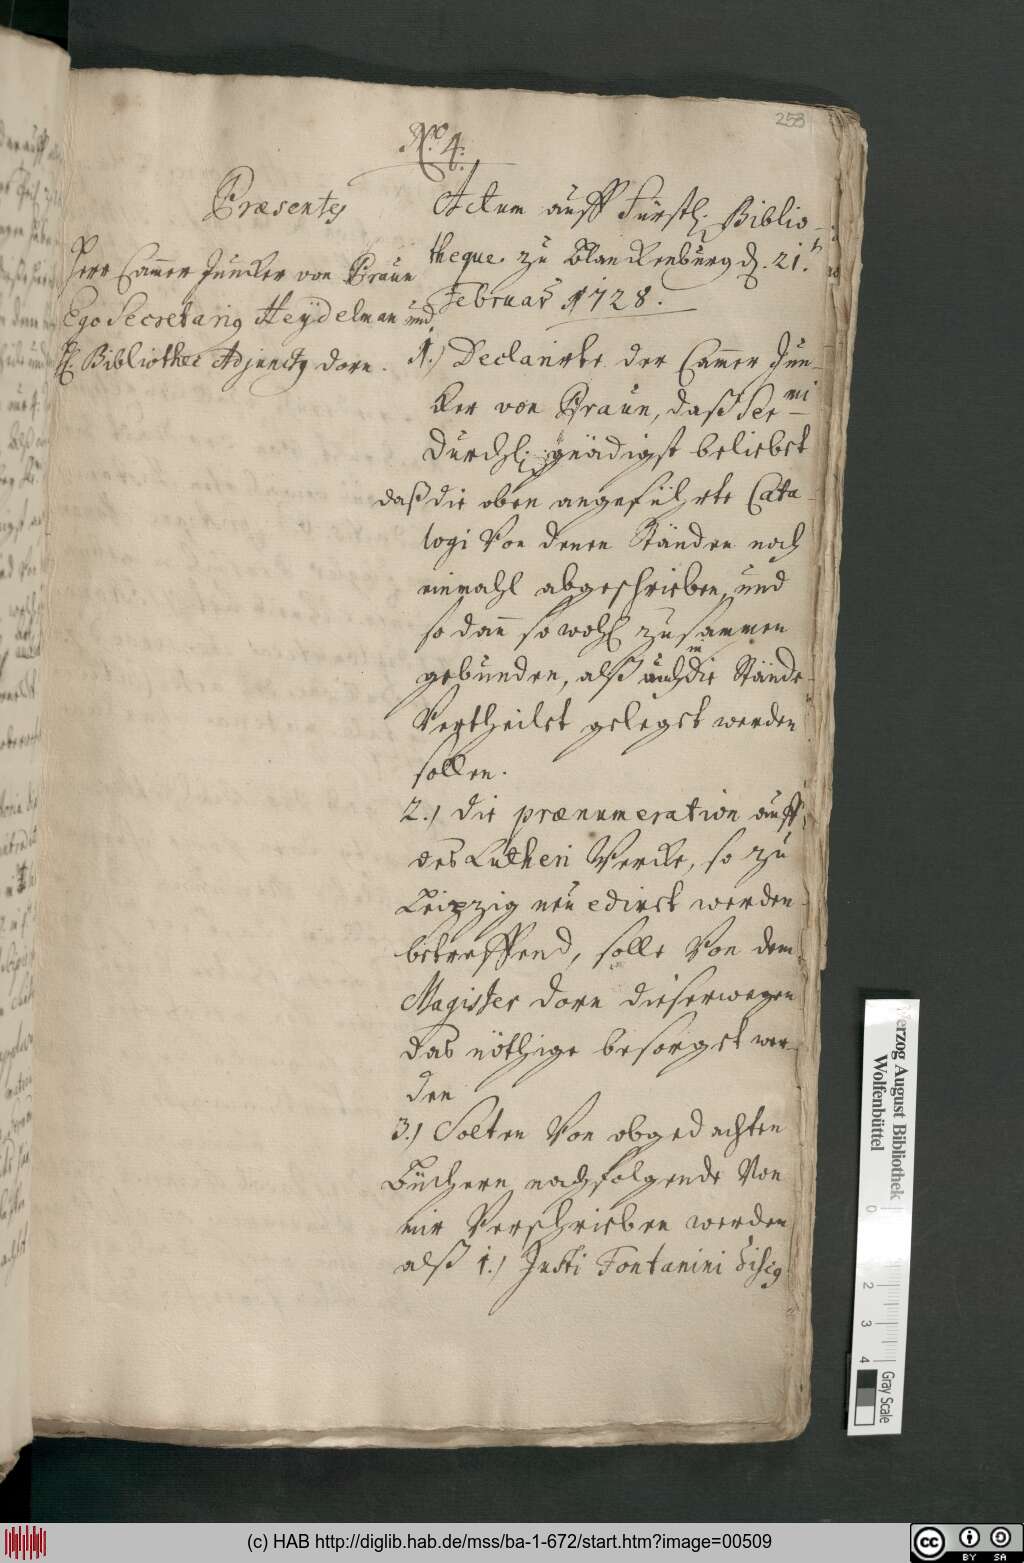 258
No. 4.
Præsentes
Herr Cammer Juncker von Praun
Ego Secretarius Heydelman und
H. Bibliothec Adjunctus Dorn.
Actum auff Fürstl. Biblio-
theque zu Blanckenburg d. 21.
Februar 1728.
1.) Declarirte der Cammer Jun-
cker von Praun, daß Ser-
Durchl. gnädigst beliebet
daß die oben angeführte Cata-
logi Von denen Ständen noch
einmahl abgeschrieben, und
so dan so wohl zusammen
gebunden, alß auch in die Stände
Vertheilet geleget werden
sollen.
2.) die prænumeration auff
des Lutheri Wercke, so zu
Leipzig neu ediret werden
betreffend, solle Von dem
Magister Dorn dieserwegen
das nöthige besorget wer-
den
3.) Solten Von obgedachten
Büchern nachfolgende Von
mir Verschrieben werden
alß 1.) Justi Fontanini
Herzog August Bibliothek
Wolfenbüttel
0
2
3
4
Gray Scale
(c) HAB http://diglib.hab.de/mss/ba-1-672/start.htm?image=00509
cc
BY SA